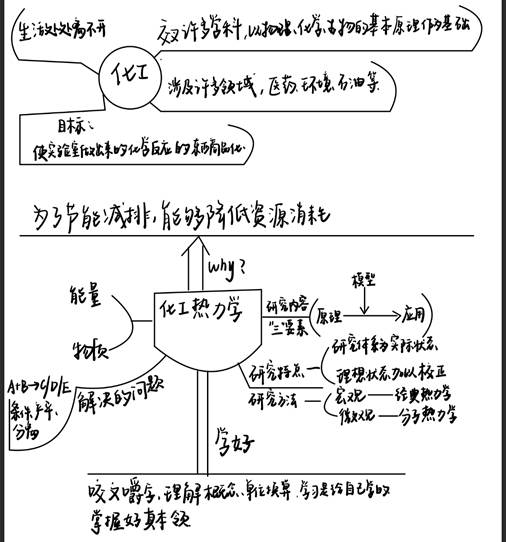 生活处处离不开
交叉许多学科,以物理、化学、生物的基本原理作为基础
化工
涉及许多领域,医药、环境、石油等
目标:
使实验室做出来的化学反应的东西商品化.
为了节能减排,能够降低资源消耗
why?
能量
物质
化工热力学
研究内容
"三"要素
模型
原理
应用
研究特点
研究体系为实际状态
理想状态加以校正
研究方法
宏观—经典热力学
微观—分子热力学
A+B→C/D/E
条件、产率、
分离
解决的问题
学好
咬文嚼字,理解概念、单位换算.学习是给自己学的
掌握好真本领